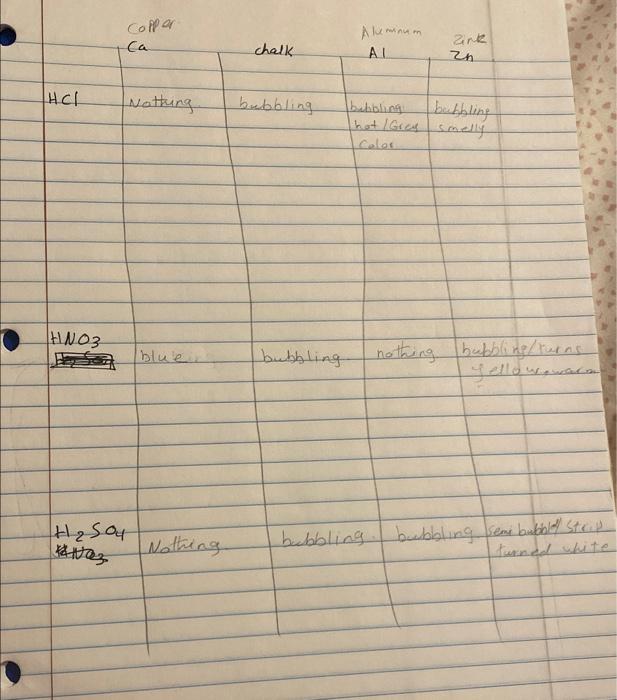 Copper Aluminum Zink
Ca chalk Al Zn
HCl Nothing bubbling bubbling bubbling
hot/Grey smelly
Color
HNO3
blue bubbling nothing bubbling/turns
yellow, warm
H2SO4 Nothing bubbling bubbling Semi bubble/ Strip
HNO3 turned white